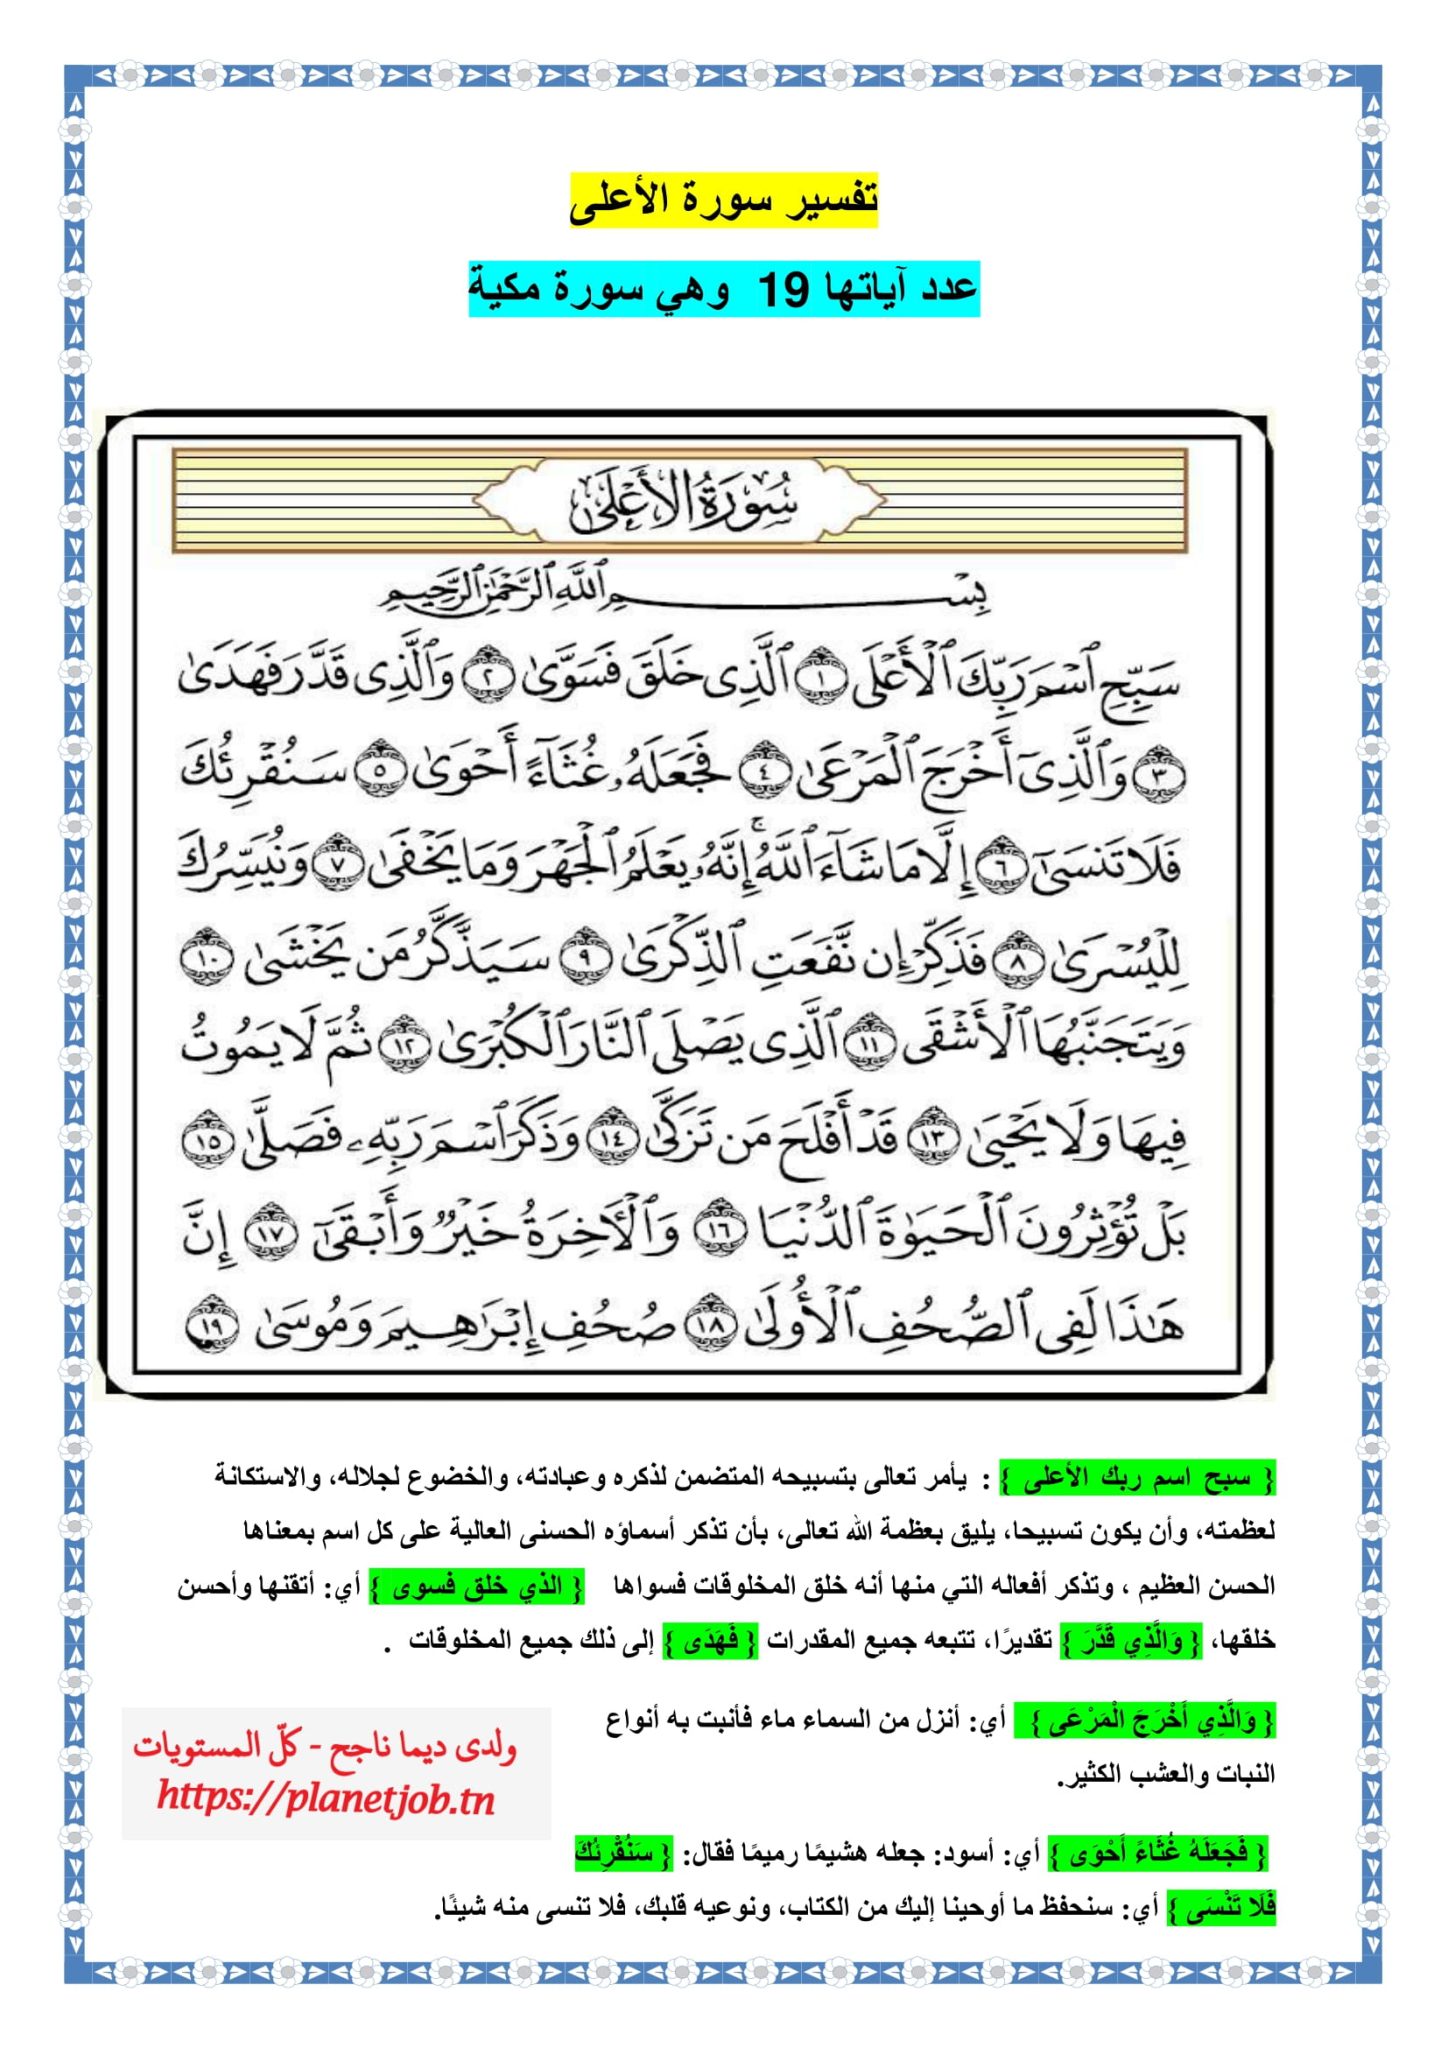 تفسير سورة الأعلى
عدد آياتها 19 وهي سورة مكية
سُورَةُ الأَعْلَىٰ
بِسْمِ ٱللَّهِ ٱلرَّحْمَٰنِ ٱلرَّحِيمِ
سَبِّحِ ٱسْمَ رَبِّكَ ٱلْأَعْلَى ١ ٱلَّذِى خَلَقَ فَسَوَّىٰ ٢ وَٱلَّذِى قَدَّرَ فَهَدَىٰ
٣ وَٱلَّذِىٓ أَخْرَجَ ٱلْمَرْعَىٰ ٤ فَجَعَلَهُۥ غُثَآءً أَحْوَىٰ ٥ سَنُقْرِئُكَ
فَلَا تَنسَىٰٓ ٦ إِلَّا مَا شَآءَ ٱللَّهُ ۚ إِنَّهُۥ يَعْلَمُ ٱلْجَهْرَ وَمَا يَخْفَىٰ ٧ وَنُيَسِّرُكَ
لِلْيُسْرَىٰ ٨ فَذَكِّرْ إِن نَّفَعَتِ ٱلذِّكْرَىٰ ٩ سَيَذَّكَّرُ مَن يَخْشَىٰ ١٠
وَيَتَجَنَّبُهَا ٱلْأَشْقَى ١١ ٱلَّذِى يَصْلَى ٱلنَّارَ ٱلْكُبْرَىٰ ١٢ ثُمَّ لَا يَمُوتُ
فِيهَا وَلَا يَحْيَىٰ ١٣ قَدْ أَفْلَحَ مَن تَزَكَّىٰ ١٤ وَذَكَرَ ٱسْمَ رَبِّهِۦ فَصَلَّىٰ ١٥
بَلْ تُؤْثِرُونَ ٱلْحَيَوٰةَ ٱلدُّنْيَا ١٦ وَٱلْـَٔاخِرَةُ خَيْرٌ وَأَبْقَىٰٓ ١٧ إِنَّ
هَٰذَا لَفِى ٱلصُّحُفِ ٱلْأُولَىٰ ١٨ صُحُفِ إِبْرَٰهِيمَ وَمُوسَىٰ ١٩
{ سبح اسم ربك الأعلى } : يأمر تعالى بتسبيحه المتضمن لذكره وعبادته، والخضوع لجلاله، والاستكانة
لعظمته، وأن يكون تسبيحا، يليق بعظمة الله تعالى، بأن تذكر أسماؤه الحسنى العالية على كل اسم بمعناها
الحسن العظيم ، وتذكر أفعاله التي منها أنه خلق المخلوقات فسواها { الذي خلق فسوى } أي: أتقنها وأحسن
خلقها، { وَالَّذِي قَدَّرَ } تقديرًا، تتبعه جميع المقدرات { فَهَدَى } إلى ذلك جميع المخلوقات .
{ وَالَّذِي أَخْرَجَ الْمَرْعَى } أي: أنزل من السماء ماء فأنبت به أنواع
النبات والعشب الكثير.
ولدي ديما ناجح - كلّ المستويات
https://planetjob.tn
{ فَجَعَلَهُ غُثَاءً أَحْوَى } أي: أسود: جعله هشيمًا رميمًا فقال: { سَنُقْرِئُكَ
فَلَا تَنْسَى } أي: سنحفظ ما أوحينا إليك من الكتاب، ونوعيه قلبك، فلا تنسى منه شيئًا.